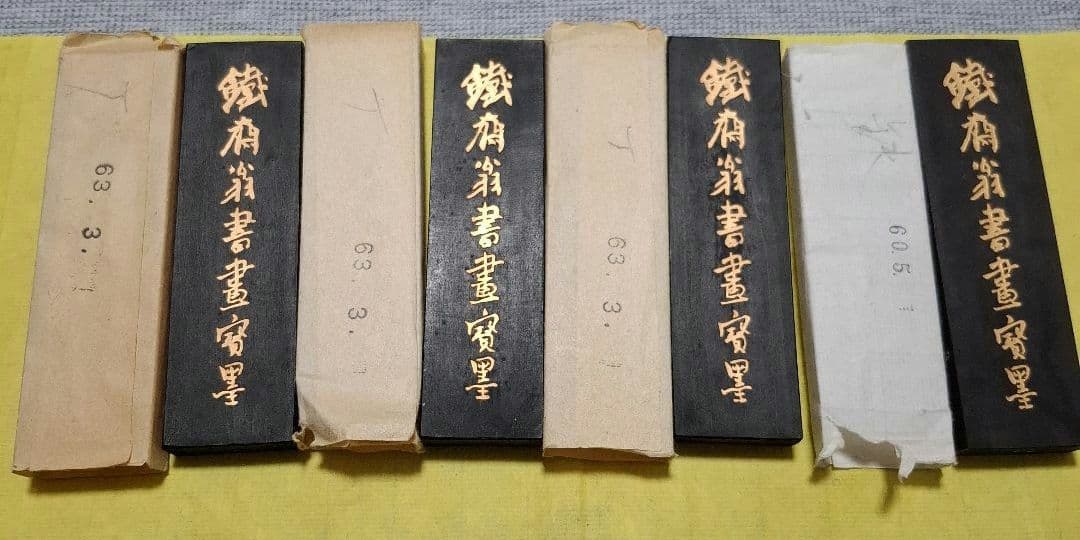 丁
63. 3.
鐵齋翁書畫寶墨
丁
63. 3.
鐵齋翁書畫寶墨
丁
63. 3.
鐵齋翁書畫寶墨
60.5.
鐵齋翁書畫寶墨